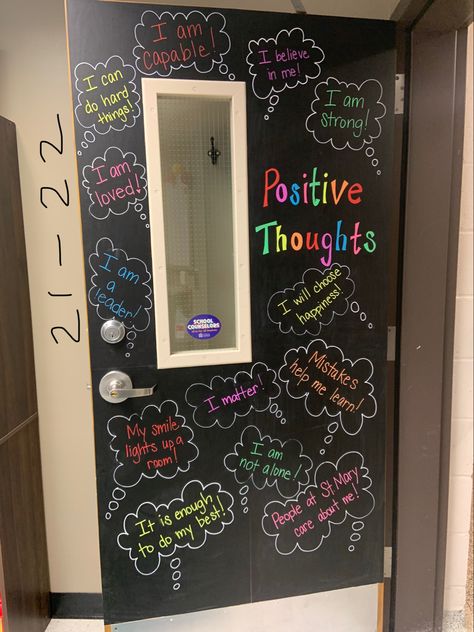 I am
capable!
I believe
in me!
I can
do hard
things!
I am
strong!
I am
loved!
Positive
Thoughts
21-22
I am
a
leader!
I will choose
happiness!
SCHOOL
COUNSELORS
Mistakes
help me learn!
I matter!
My
smile
lights up a
room!
I am
not alone!
It is enough
to do my best!
People at St Mary
care about me!